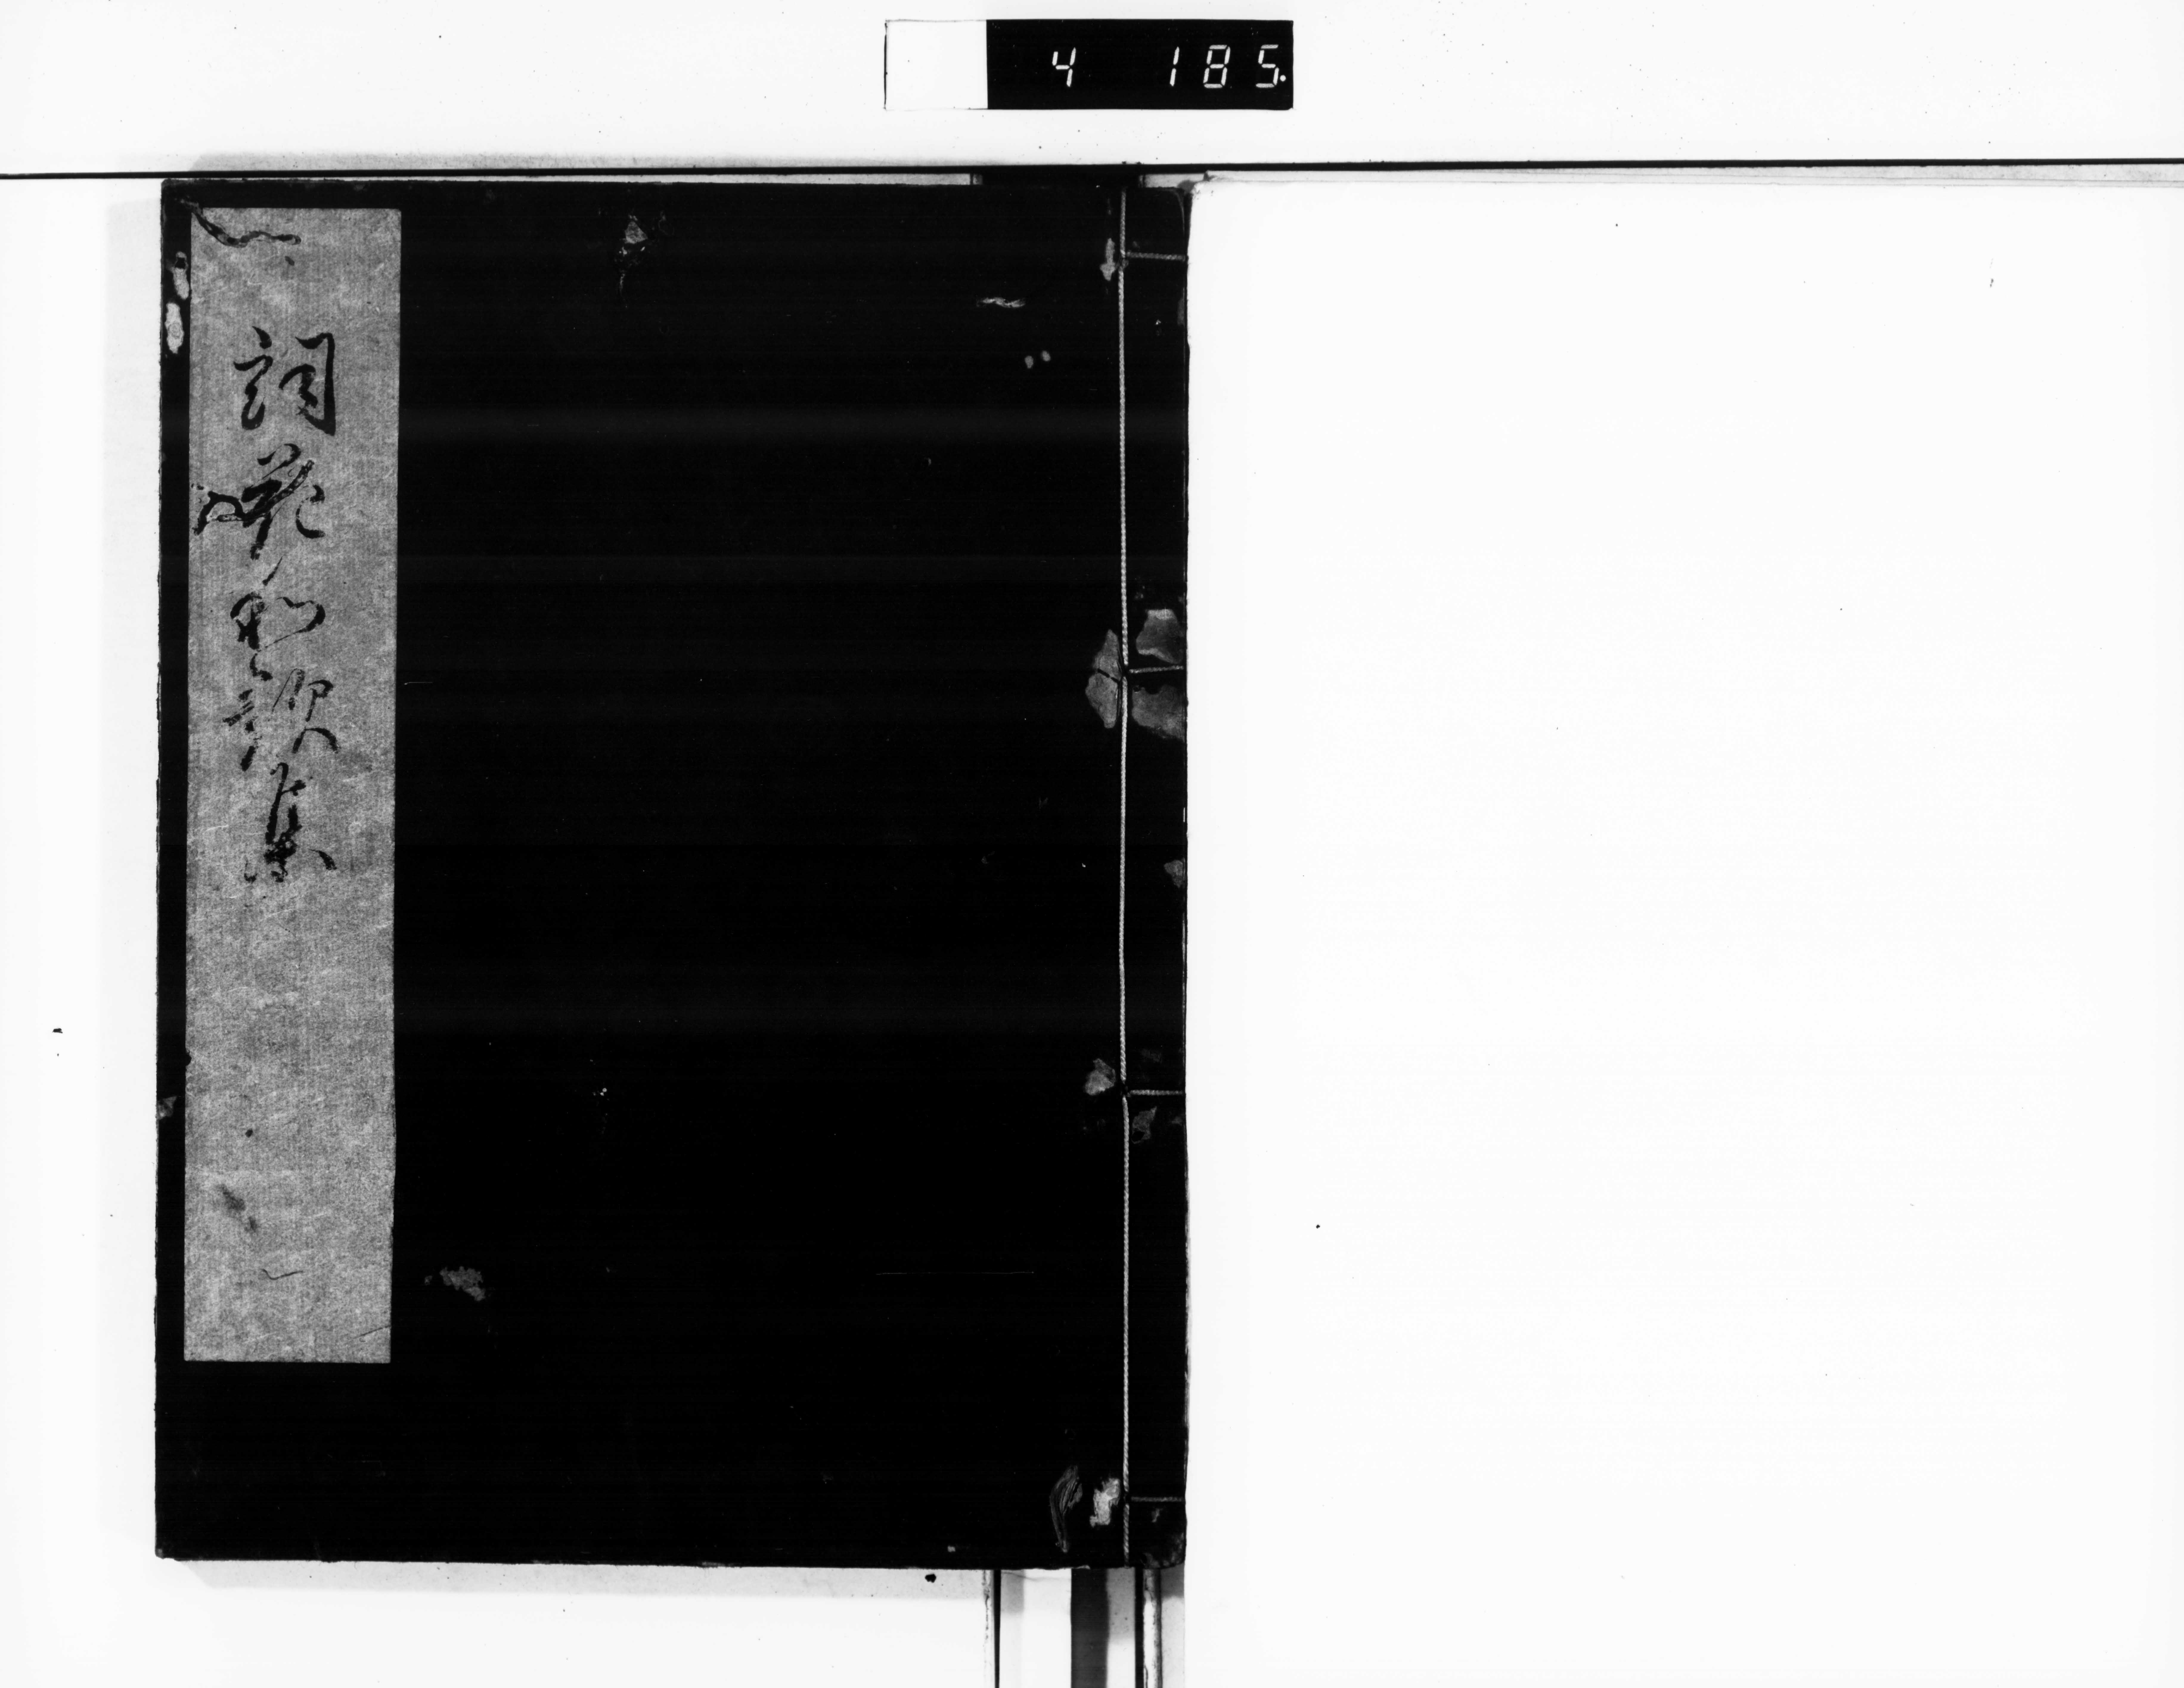 4 185.
詞花和歌集